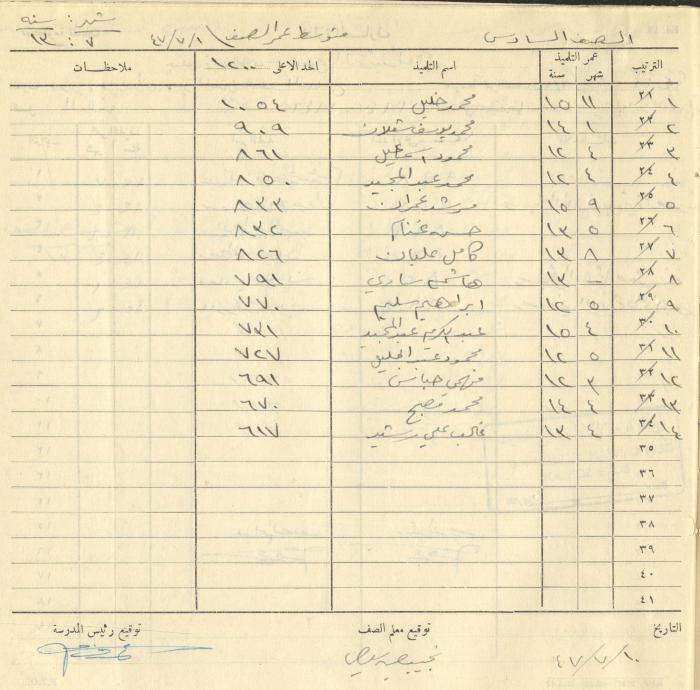 الصف السادس متوسط عمر الصف ٤٧/٧/١ شهر: سنه ٧ : ١٣
الترتيب عمر التلميذ شهر سنة اسم التلميذ الحد الاعلى ١٢٠٠ ملاحظات
٢١ ١ ١١ ١٥ محمد خليل ١٠٥٤
٢٢ ٢ ١ ١٤ محمد يوسف شعلان ٩٠٩
٢٣ ٣ ٤ ١٢ محمود اسماعيل ٨٦١
٢٤ ٤ ٤ ١٢ محمد عبد المجيد ٨٥٠
٢٥ ٥ ٩ ١٥ مرشد عمران ٨٣٣
٢٦ ٦ ٥ ١٣ حسن غنام ٨٣٢
٢٧ ٧ ٨ ١٣ كامل عليان ٨٢٦
٢٨ ٨ - ١٣ هاشم ٧٩١
٢٩ ٩ ٥ ١٢ ابراهيم سليم ٧٧٠
٣٠ ١٠ ٤ ١٥ عبد الكريم عبد المجيد ٧٣١
٣١ ١١ ٥ ١٢ محمود عبد الجليل ٧٢٧
٣٢ ١٢ ٣ ١٢ ٦٩١
٣٣ ١٣ ٤ ١٤ محمد ٦٧٠
٣٤ ١٤ ٤ ١٣ غالب علي رشيد ٦١٧
٣٥
٣٦
٣٧
٣٨
٣٩
٤٠
٤١
التاريخ توقيع معلم الصف توقيع رئيس المدرسة
٤٧/٧/١٠